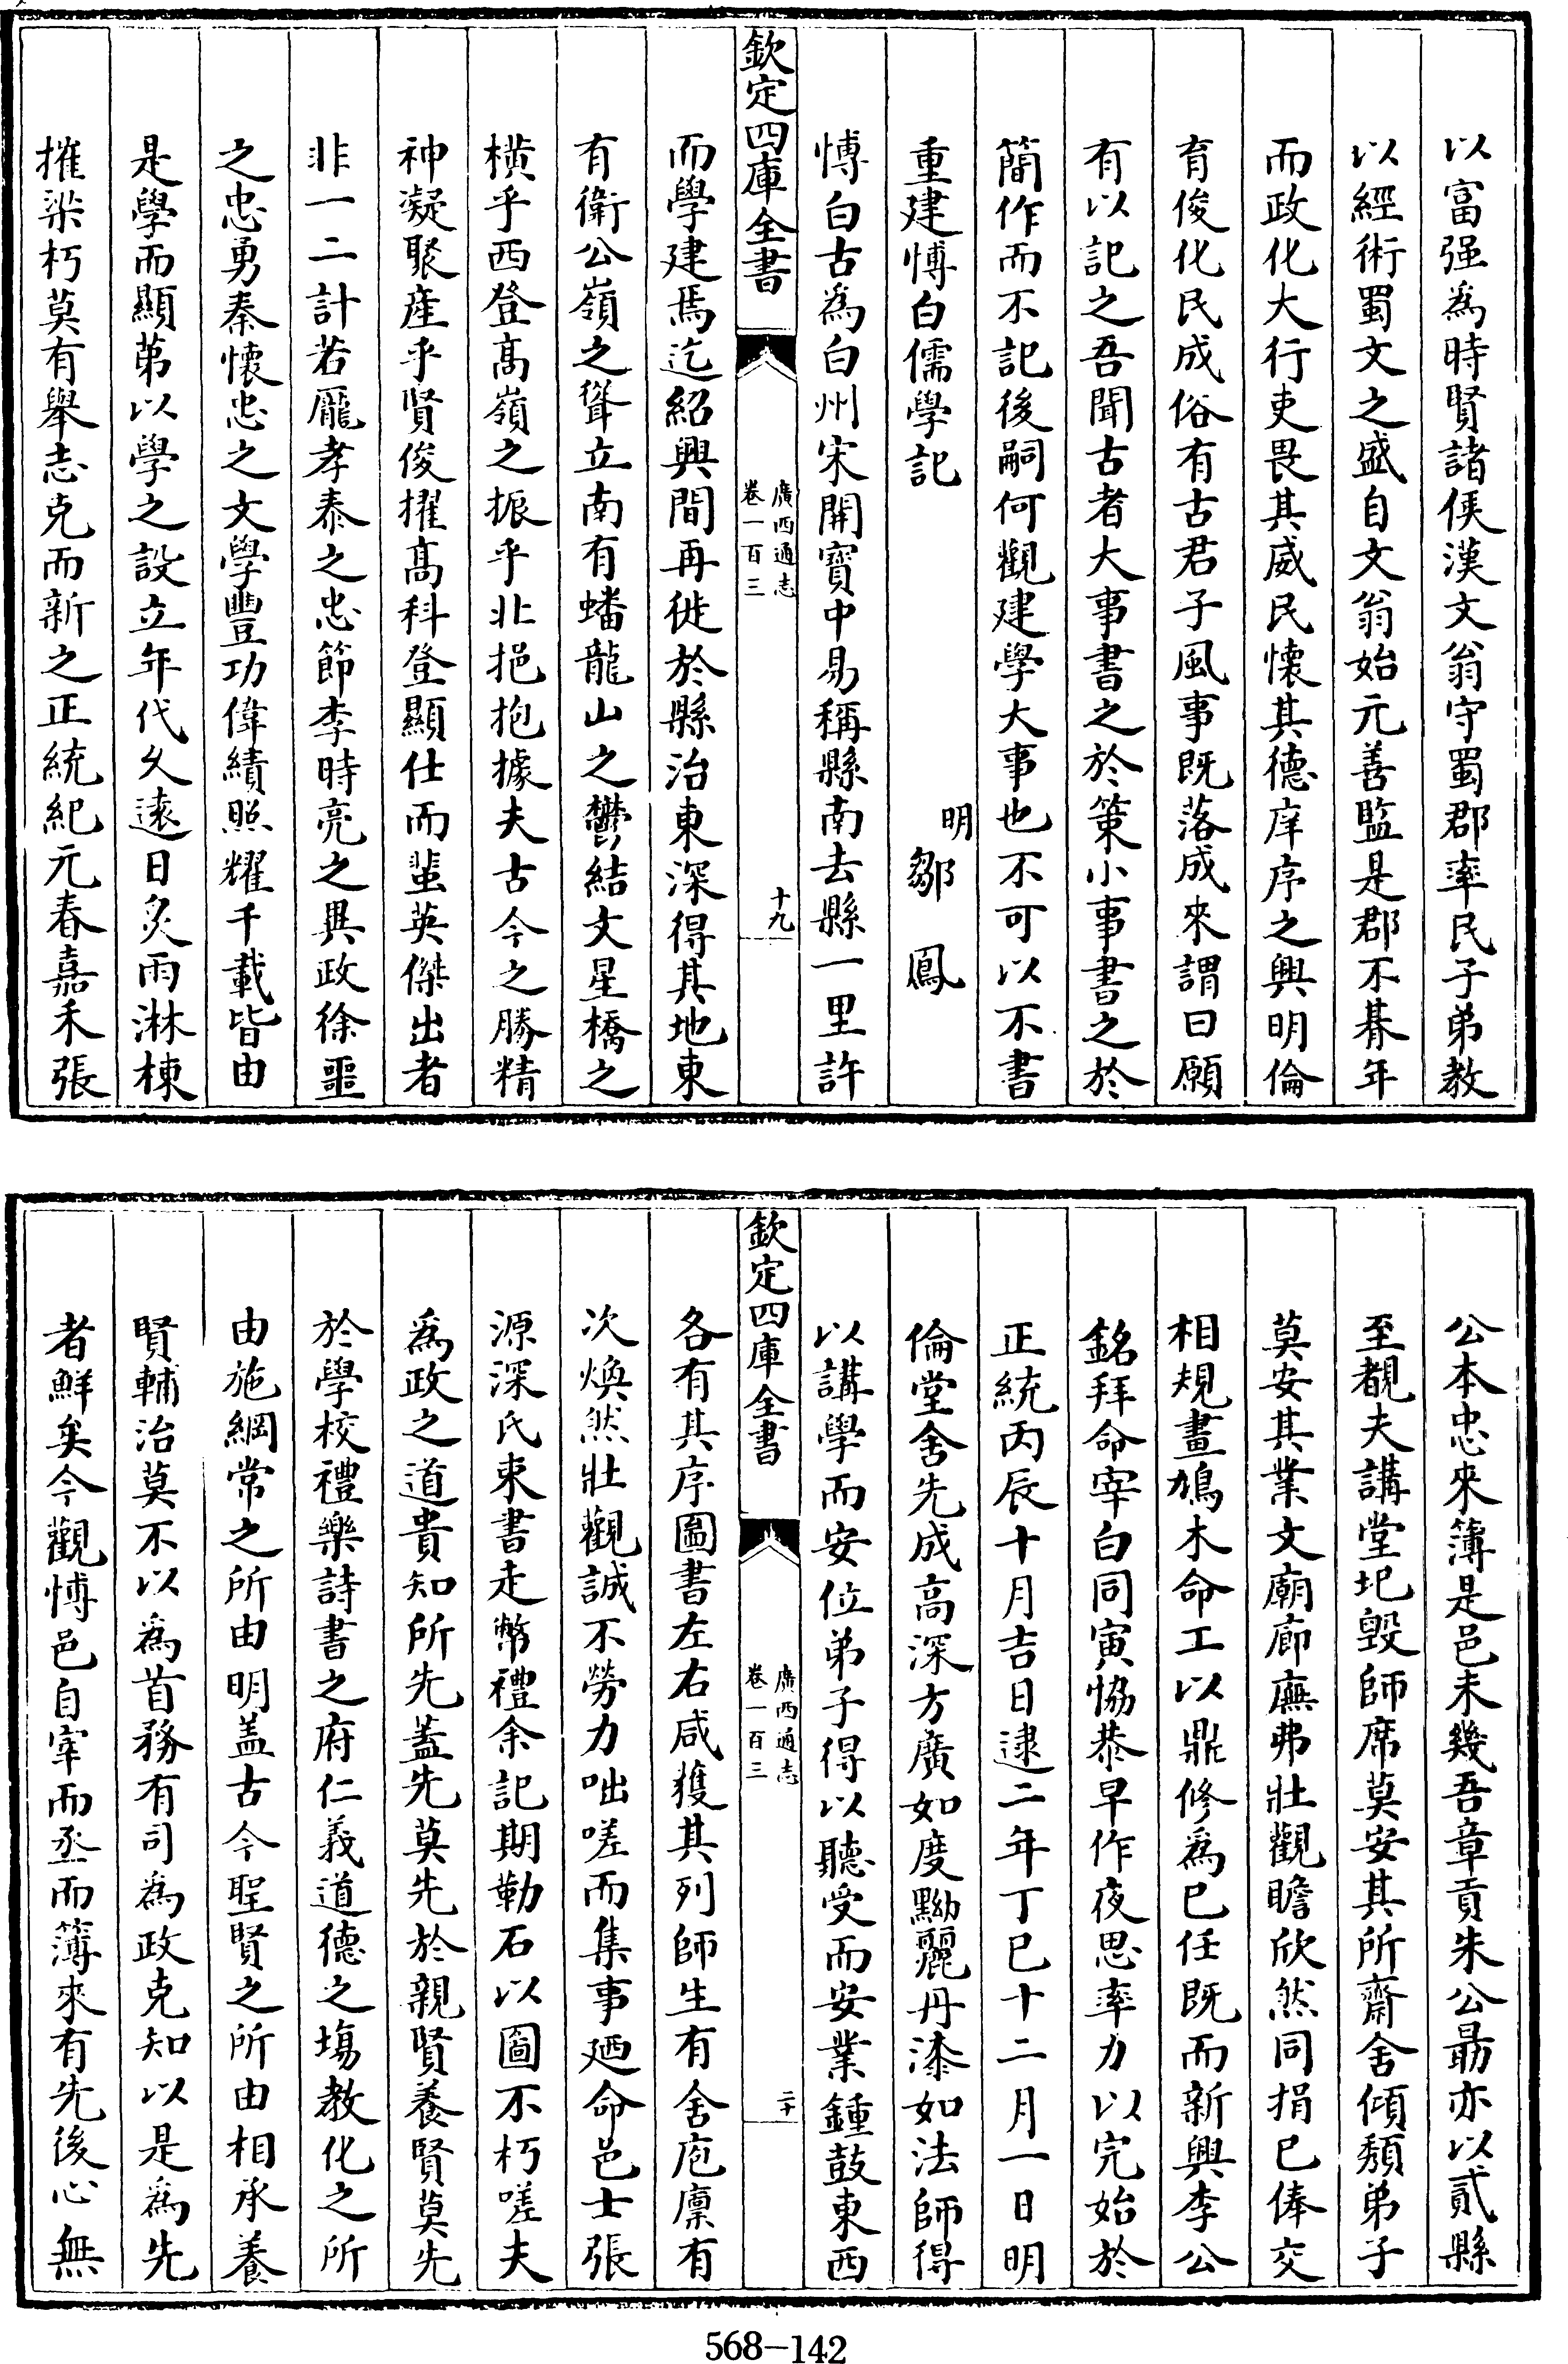 以富强為時賢諸侯漢文翁守蜀郡率民子弟教
以經術蜀文之盛自文翁始元善監是郡不朞年
而政化大行吏畏其威民懷其德庠序之興明倫
育俊化民成俗有古君子風事既落成來謂曰願
有以記之吾聞古者大事書之於策小事書之於
簡作而不記後嗣何觀建學大事也不可以不書
重建愽白儒學記
明鄒鳳
愽白古為白州宋開寶中易稱縣南去縣一里許
欽定四庫全書
廣西通志
卷一百三
十九
而學建焉迄紹興間再徙於縣治東深得其地東
有衛公嶺之聳立南有蟠龍山之鬱結文星橋之
橫乎西登髙嶺之振乎北挹抱據夫古今之勝精
神凝聚産乎賢俊擢髙科登顯仕而蜚英傑出者
非一二計若龎孝泰之忠節李時亮之異政徐噩
之忠勇秦懷忠之文學豐功偉績照耀千載皆由
是學而顯第以學之設立年代乆遠日炙雨淋棟
摧梁朽莫有舉志克而新之正統紀元春嘉禾張
公本忠來簿是邑未幾吾章貢朱公勗亦以貳縣
至覩夫講堂圮毀師席莫安其所齋舍傾頽弟子
莫安其業文廟廊廡弗壯觀瞻欣然同捐已俸交
相規畫鳩木命工以鼎修為已任既而新興李公
銘拜命宰白同寅恊恭早作夜思率力以完始於
正統丙辰十月吉日逮二年丁巳十二月一日明
倫堂舍先成高深方廣如度黝麗丹漆如法師得
以講學而安位弟子得以聽受而安業鍾鼓東西
欽定四庫全書
廣西通志
卷一百三
二十
各有其序圖書左右咸獲其列師生有舍庖廩有
次煥然壯觀誠不勞力咄嗟而集事廼命邑士張
源深氏束書走幣禮余記期勒石以圖不朽嗟夫
為政之道貴知所先葢先莫先於親賢養賢莫先
於學校禮樂詩書之府仁義道德之塲教化之所
由施綱常之所由明盖古今聖賢之所由相承養
賢輔治莫不以為首務有司為政克知以是為先
者鮮矣今觀愽邑自宰而丞而簿來有先後心無
568-142